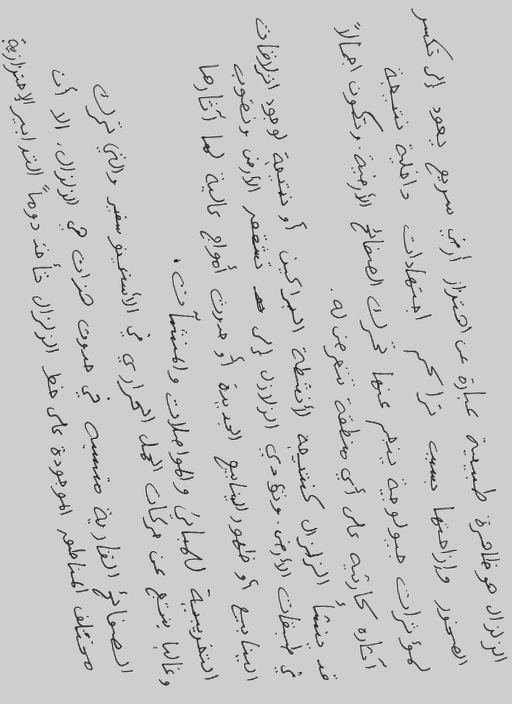 الزلزال هو ظاهرة طبيعية عبارة عن اهتزاز أرضي سريع يعود إلى تكسر
الصخور وإزاحتها بسبب تراكم اجتهادات داخلية نتيجة
لمؤثرات جيولوجية ينجم عنها تحرك الصفائح الأرضية. وتكون اجمالاً
آثاره كارثية على أي منطقة تتعرض له.
قد ينشأ الزلزال كنتيجة لأنشطة البراكين أو نتيجة لوجود انزلاقات
في طبقات الأرض. وتؤدي الزلازل إلى تشقق الأرض ونضوب
الينابيع أو ظهور الينابيع الجديدة أو حدوث أمواج عالية لها آثارها
التخريبية للمباني والمواصلات والمنشآت.
وغالبا ينتج عن حركات الحمل الحراري في الأستينوسفير والتي تحرك
الصفائح القارية متسببه في حدوث هزات هي الزلزال. الا أن
مختلف المناطق الموجودة على خط الزلزال تأخذ دوماً التدابير الاحترازية